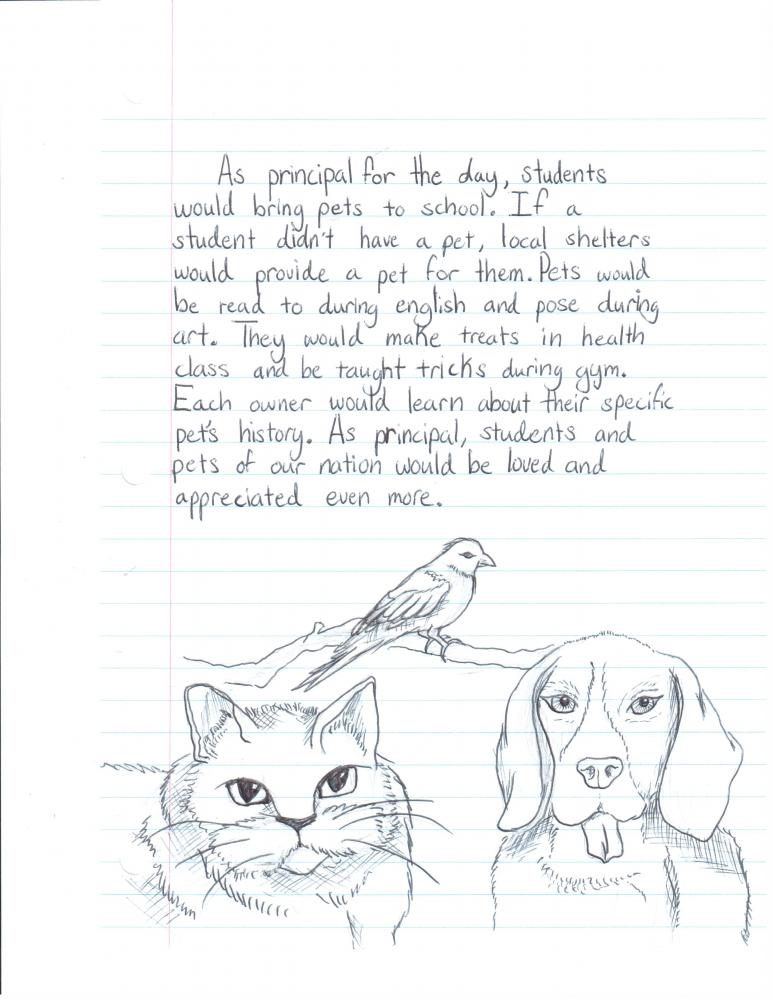 As principal for the day, students
would bring pets to school. If a
student didn't have a pet, local shelters
would provide a pet for them. Pets would
be read to during english and pose during
art. They would make treats in health
class and be taught tricks during gym.
Each owner would learn about their specific
pet's history. As principal, students and
pets of our nation would be loved and
appreciated even more.